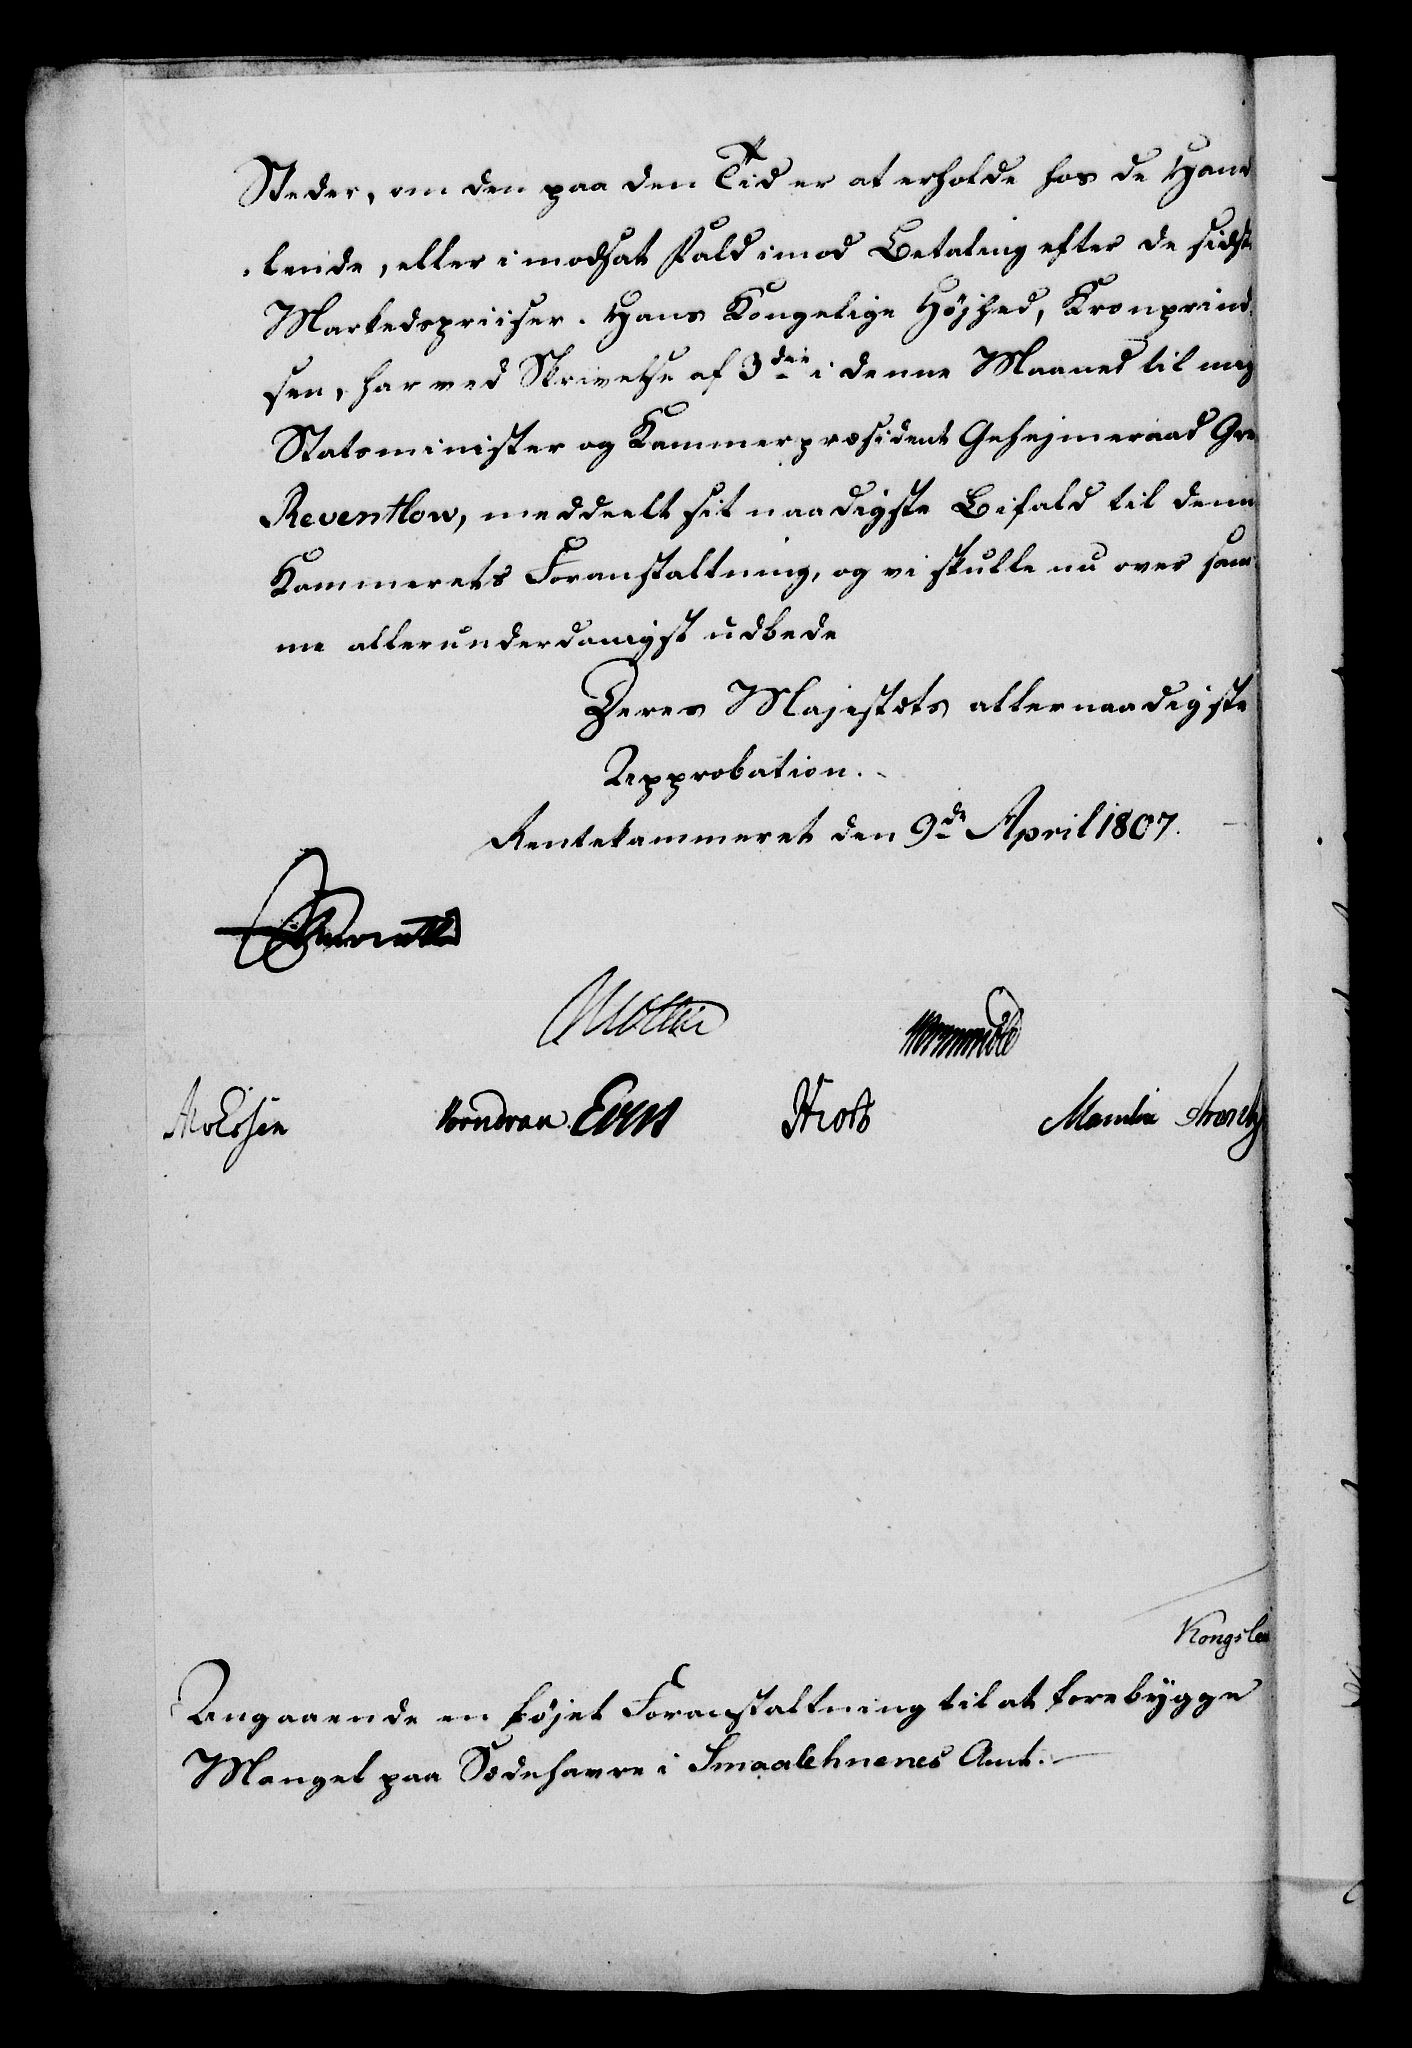 Steder, om den paa den Tid er at erholde hos de Hand
lende, eller i modsat Fald imod Betaling efter de sidste
Markedspriiser. Hans Kongelige Højhed, Kronprind-
sen, har ved Skrivelse af 3die i denne Maaned til mig
Statsminister og Kammerpræsident Gehejmeraad Gre
Reventlow, meddeelt sit naadigste Bifald til denne
Kammerets Foranstaltning, og vi skulle nu over sam-
me allerunderdanigst udbede
Deres Majestæts allernaadigste
Approbation.
Rentekammeret den 9de April 1807.
Reventlow
Wormskiold
Vondran Evers
Kongslew
Angaaende en føjet Foranstaltning til at forebygge
Mangel paa Sædehavre i Smaalehnenes Amt.